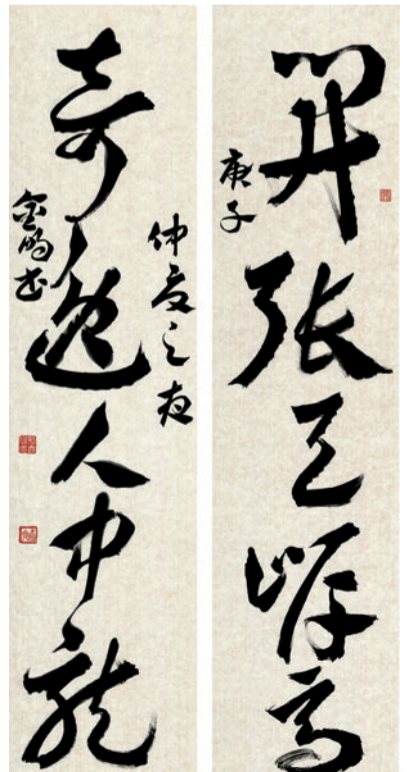 開張天岸馬
庚子
奇逸人中龍
仲夏之夜